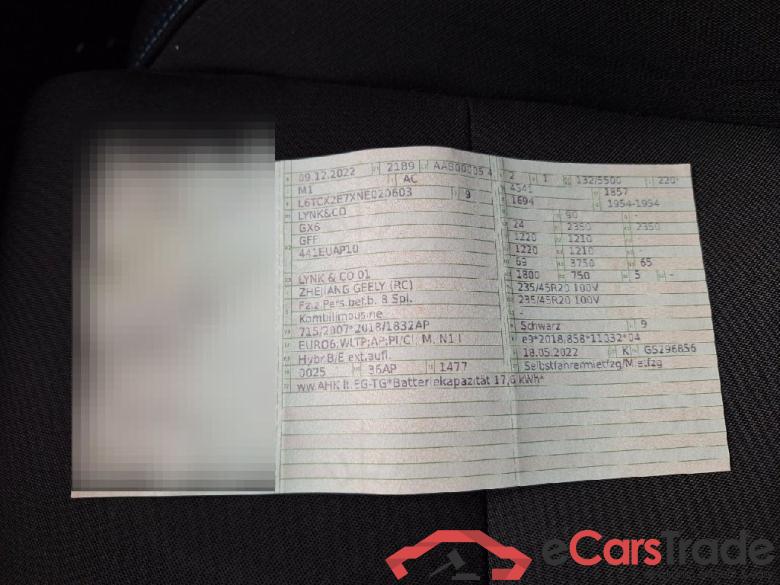 09.12.2022 2189 AAB00005 4
M1 AC
L6TCX2E7XNE020603 9
LYNK&CO
GX6
GFF
441EUAP10
LYNK & CO 01
ZHEJIANG GEELY (RC)
Fz.z.Pers.bef.b. 8 Spl.
Kombilimousine
715/2007*2018/1832AP
EURO6;WLTP;AP;PI/CI; M, N1 I
Hybr.B/E ext.aufl.
0025 36AP 1477
ww.AHK lt.EG-TG*Batteriekapazität 17,6 kWh*
2 1 132/5500 220
4541 1857
1694 1954-1954
90 -
24 2350 2350
1220 1210
1220 1210 -
69 3750 65
1800 750 5 -
235/45R20 100V
235/45R20 100V
-
Schwarz 9
e9*2018/858*11032*04
18.05.2022 K GS296856
Selbstfahrermietfzg/Mietfzg
eCarsTrade